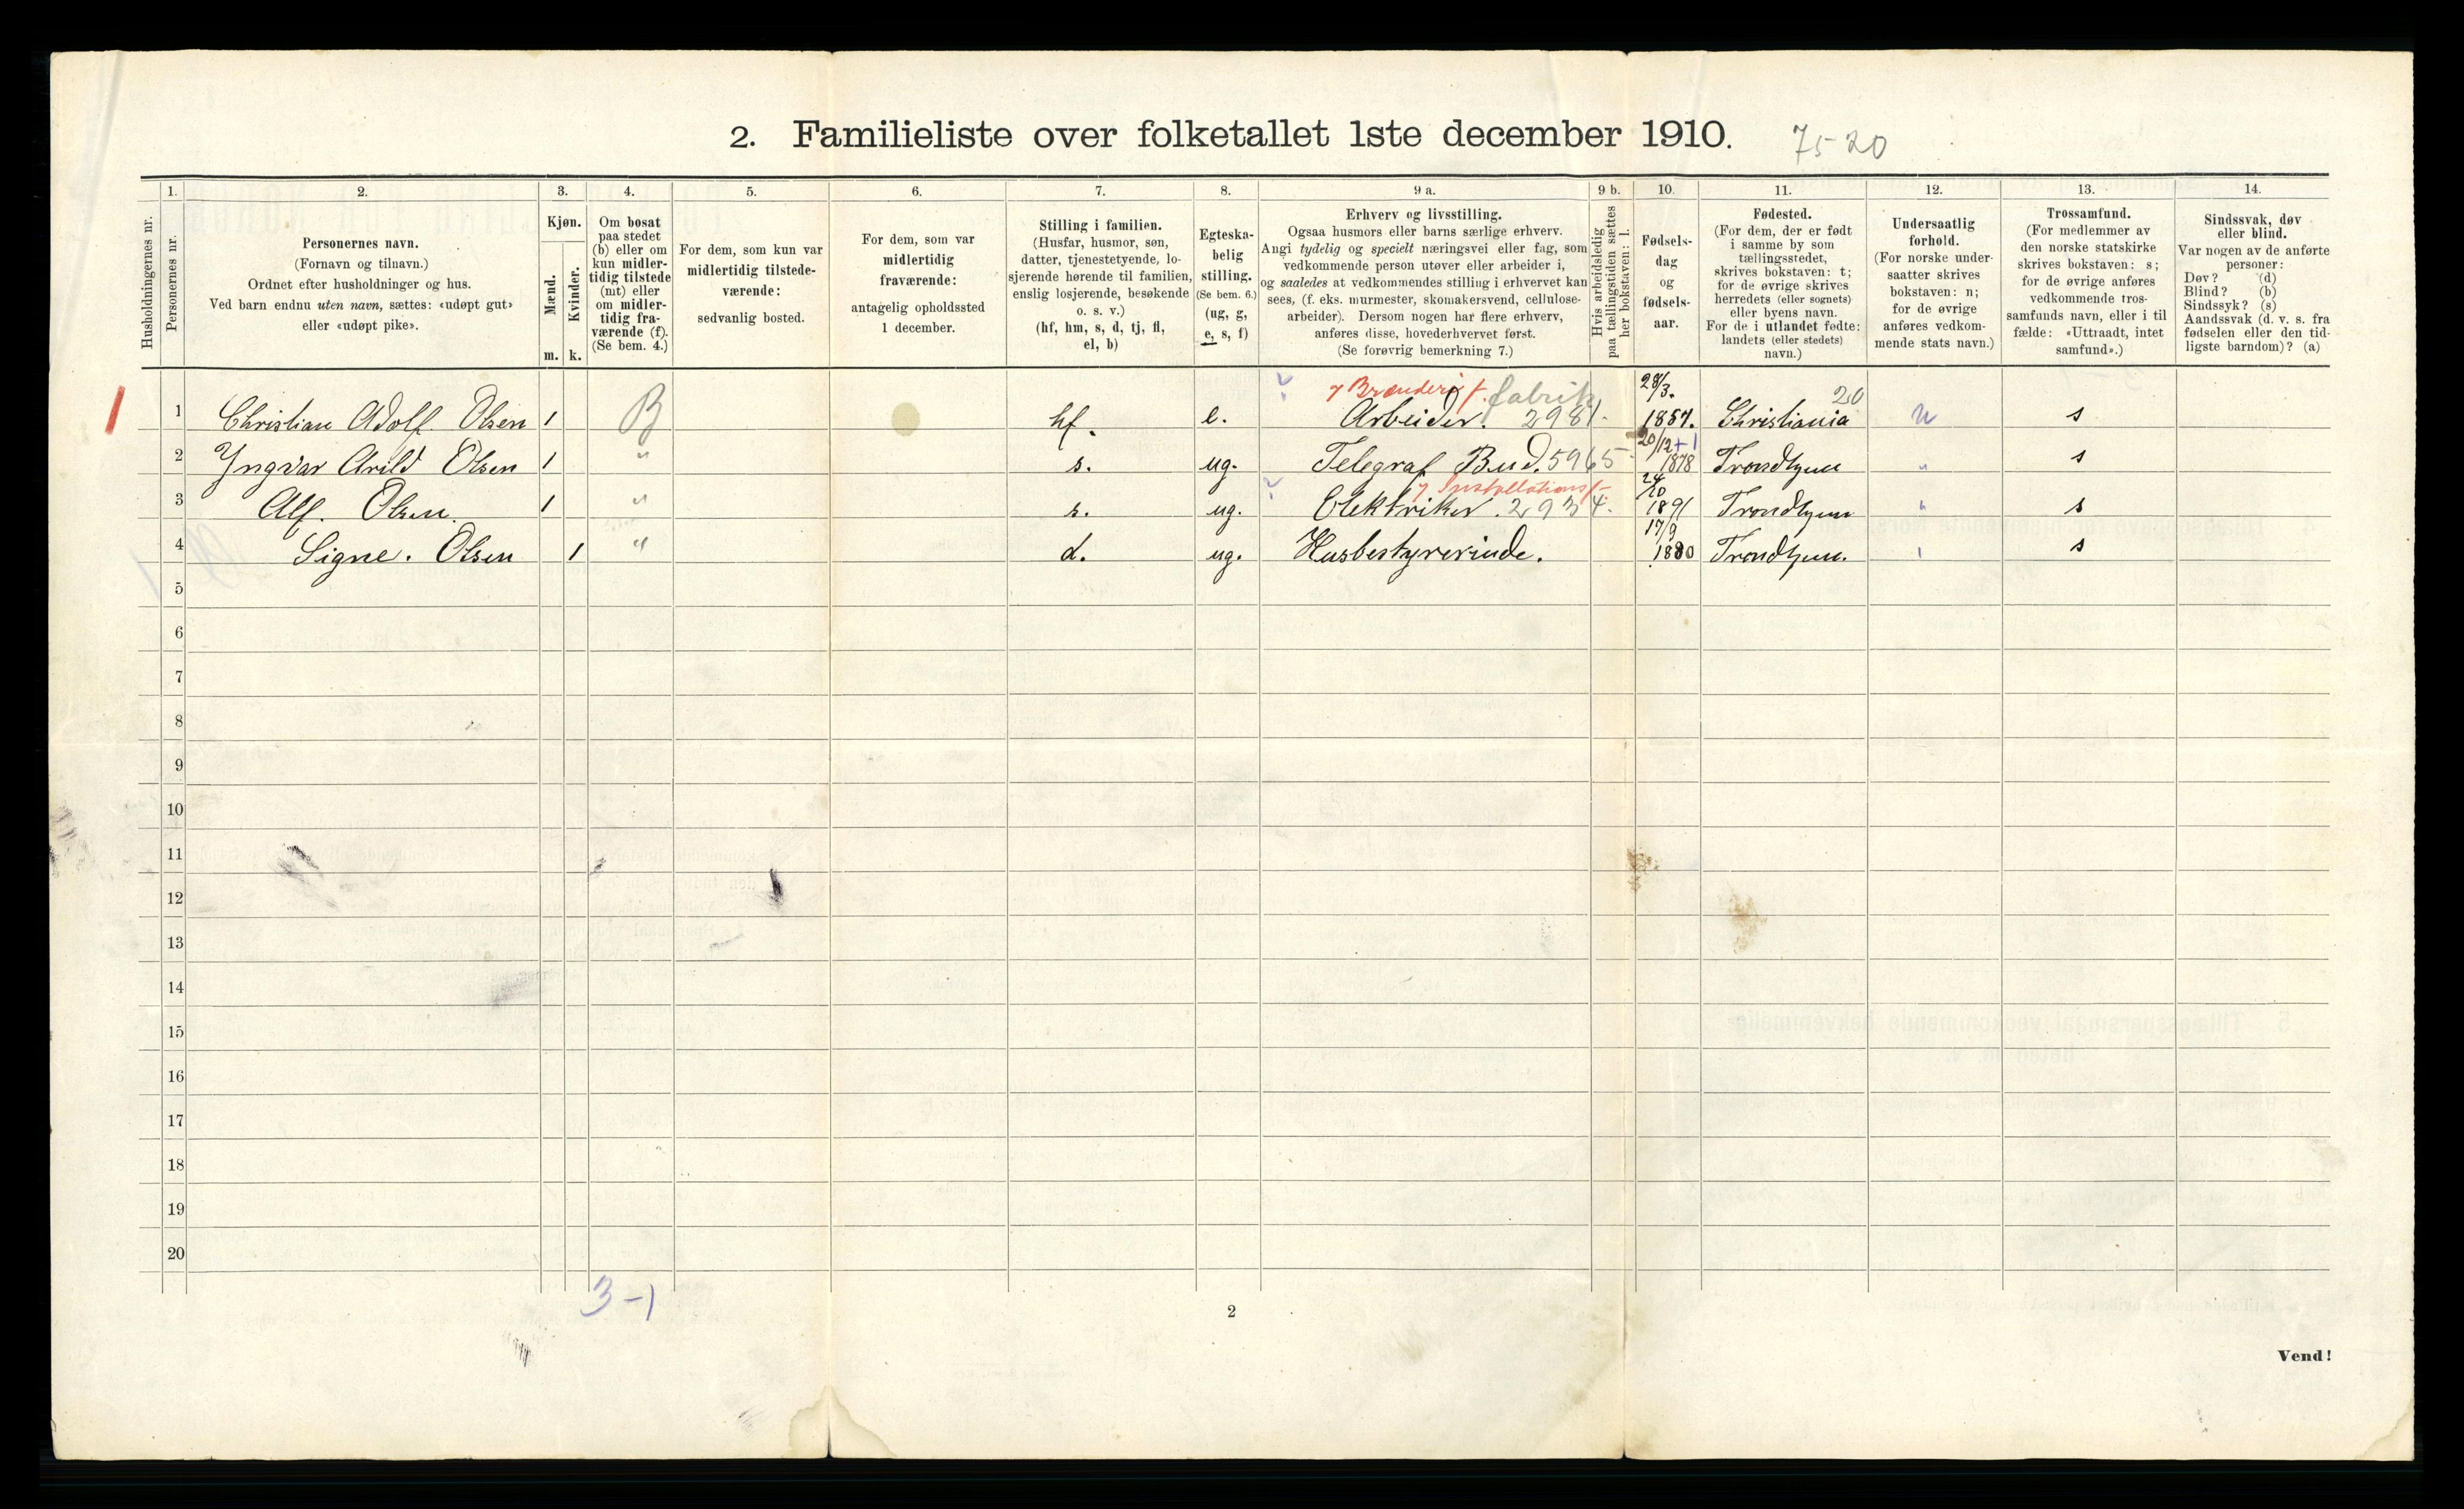 2. Familieliste over folketallet 1ste december 1910.
75-20
Husholdningernes nr.
1.
Personernes nr.
2.
Personernes navn.
(Fornavn og tilnavn.)
Ordnet efter husholdninger og hus.
Ved barn endnu uten navn, sættes: «udøpt gut»
eller «udøpt pike».
3.
Kjøn.
Mænd.
m.
Kvinder.
k.
4.
Om bosat
paa stedet
(b) eller om
kun midler-
tidig tilstede
(mt) eller
om midler-
tidig fra-
værende (f).
(Se bem. 4.)
5.
For dem, som kun var
midlertidig tilstede-
værende:
sedvanlig bosted.
6.
For dem, som var
midlertidig
fraværende:
antagelig opholdssted
1 december.
7.
Stilling i familien.
(Husfar, husmor, søn,
datter, tjenestetyende, lo-
sjerende hørende til familien,
enslig losjerende, besøkende
o. s. v.)
(hf, hm, s, d, tj, fl,
el, b)
8.
Egteska-
belig
stilling.
(Se bem. 6.)
(ug, g,
e, s, f)
9 a.
Erhverv og livsstilling.
Ogsaa husmors eller barns særlige erhverv.
Angi tydelig og specielt næringsvei eller fag, som
vedkommende person utøver eller arbeider i,
og saaledes at vedkommendes stilling i erhvervet kan
sees, (f. eks. murmester, skomakersvend, cellulose-
arbeider). Dersom nogen har flere erhverv,
anføres disse, hovederhvervet først.
(Se forøvrig bemerkning 7.)
9 b.
Hvis arbeidsledig
paa tællingstiden sættes
her bokstaven: l.
10.
Fødsels-
dag
og
fødsels-
aar.
11.
Fødested.
(For dem, der er født
i samme by som
tællingsstedet,
skrives bokstaven: t;
for de øvrige skrives
herredets (eller sognets)
eller byens navn.
For de i utlandet fødte:
landets (eller stedets)
navn.)
12.
Undersaatlig
forhold.
(For norske under-
saatter skrives
bokstaven: n;
for de øvrige
anføres vedkom-
mende stats navn.)
13.
Trossamfund.
(For medlemmer av
den norske statskirke
skrives bokstaven: s;
for de øvrige anføres
vedkommende tros-
samfunds navn, eller i til
fælde: «Uttraadt, intet
samfund».)
14.
Sindssvak, døv
eller blind.
Var nogen av de anførte
personer:
Døv? (d)
Blind? (b)
Sindssyk? (s)
Aandssvak (d. v. s. fra
fødselen eller den tid-
ligste barndom)? (a)
Brænderi f. fabrik 28/3. 20
1 Christian Adolf Olsen 1 B hf. e. Arbeider. 2981. 1857. Christiania n s
20/12 +1
2 Yngvar Arild Olsen 1 " s. ug. Telegraf Bud. 5965 1878 Trondhjem " s
Installations f. 24/10
3 Alf. Olsen. 1 " s. ug. Elektriker. 2934. 1891 Trondhjem " s
17/9
4 Signe. Olsen 1 " d. ug. Husbestyrerinde. 1880 Trondhjem. " s
5
6
7
8
9
10
11
12
13
14
15
16
17
18
19
20
3-1
2
Vend!